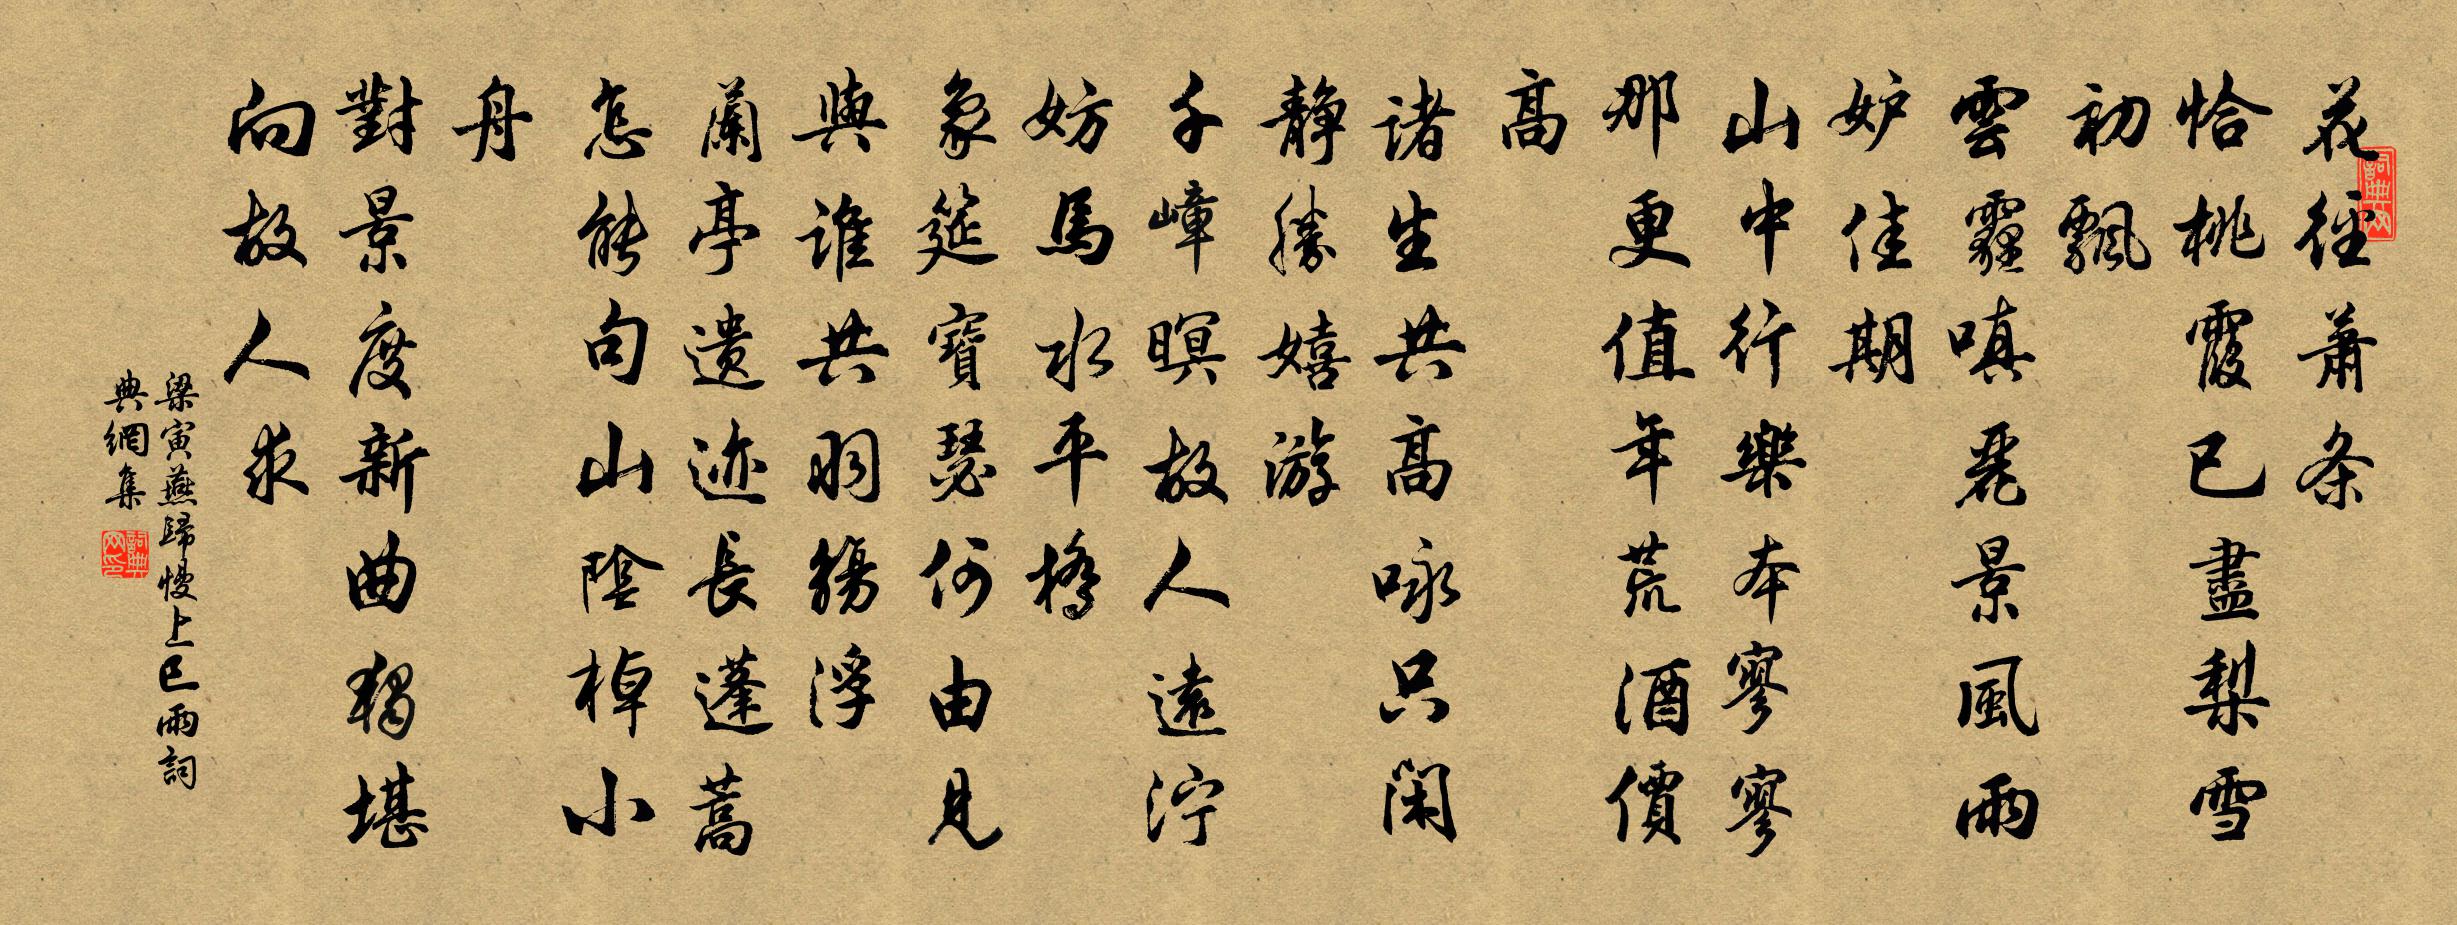 花径萧条
恰桃霞已盡梨雪
初飄
雲霾嗔麗景風雨
妒佳期
山中行樂本寥寥
那更值年荒酒價
高
诸生共高咏只闲
静勝嬉游
千嶂暝故人遠泞
妨馬水平橋
象筵寶瑟何由見
與誰共羽觴浮
蘭亭遗迹長蓬蒿
怎能句山陰棹小
舟
對景度新曲猶堪
向故人求
梁寅燕歸慢上巳雨詞
典網集
詞典网
詞典网印